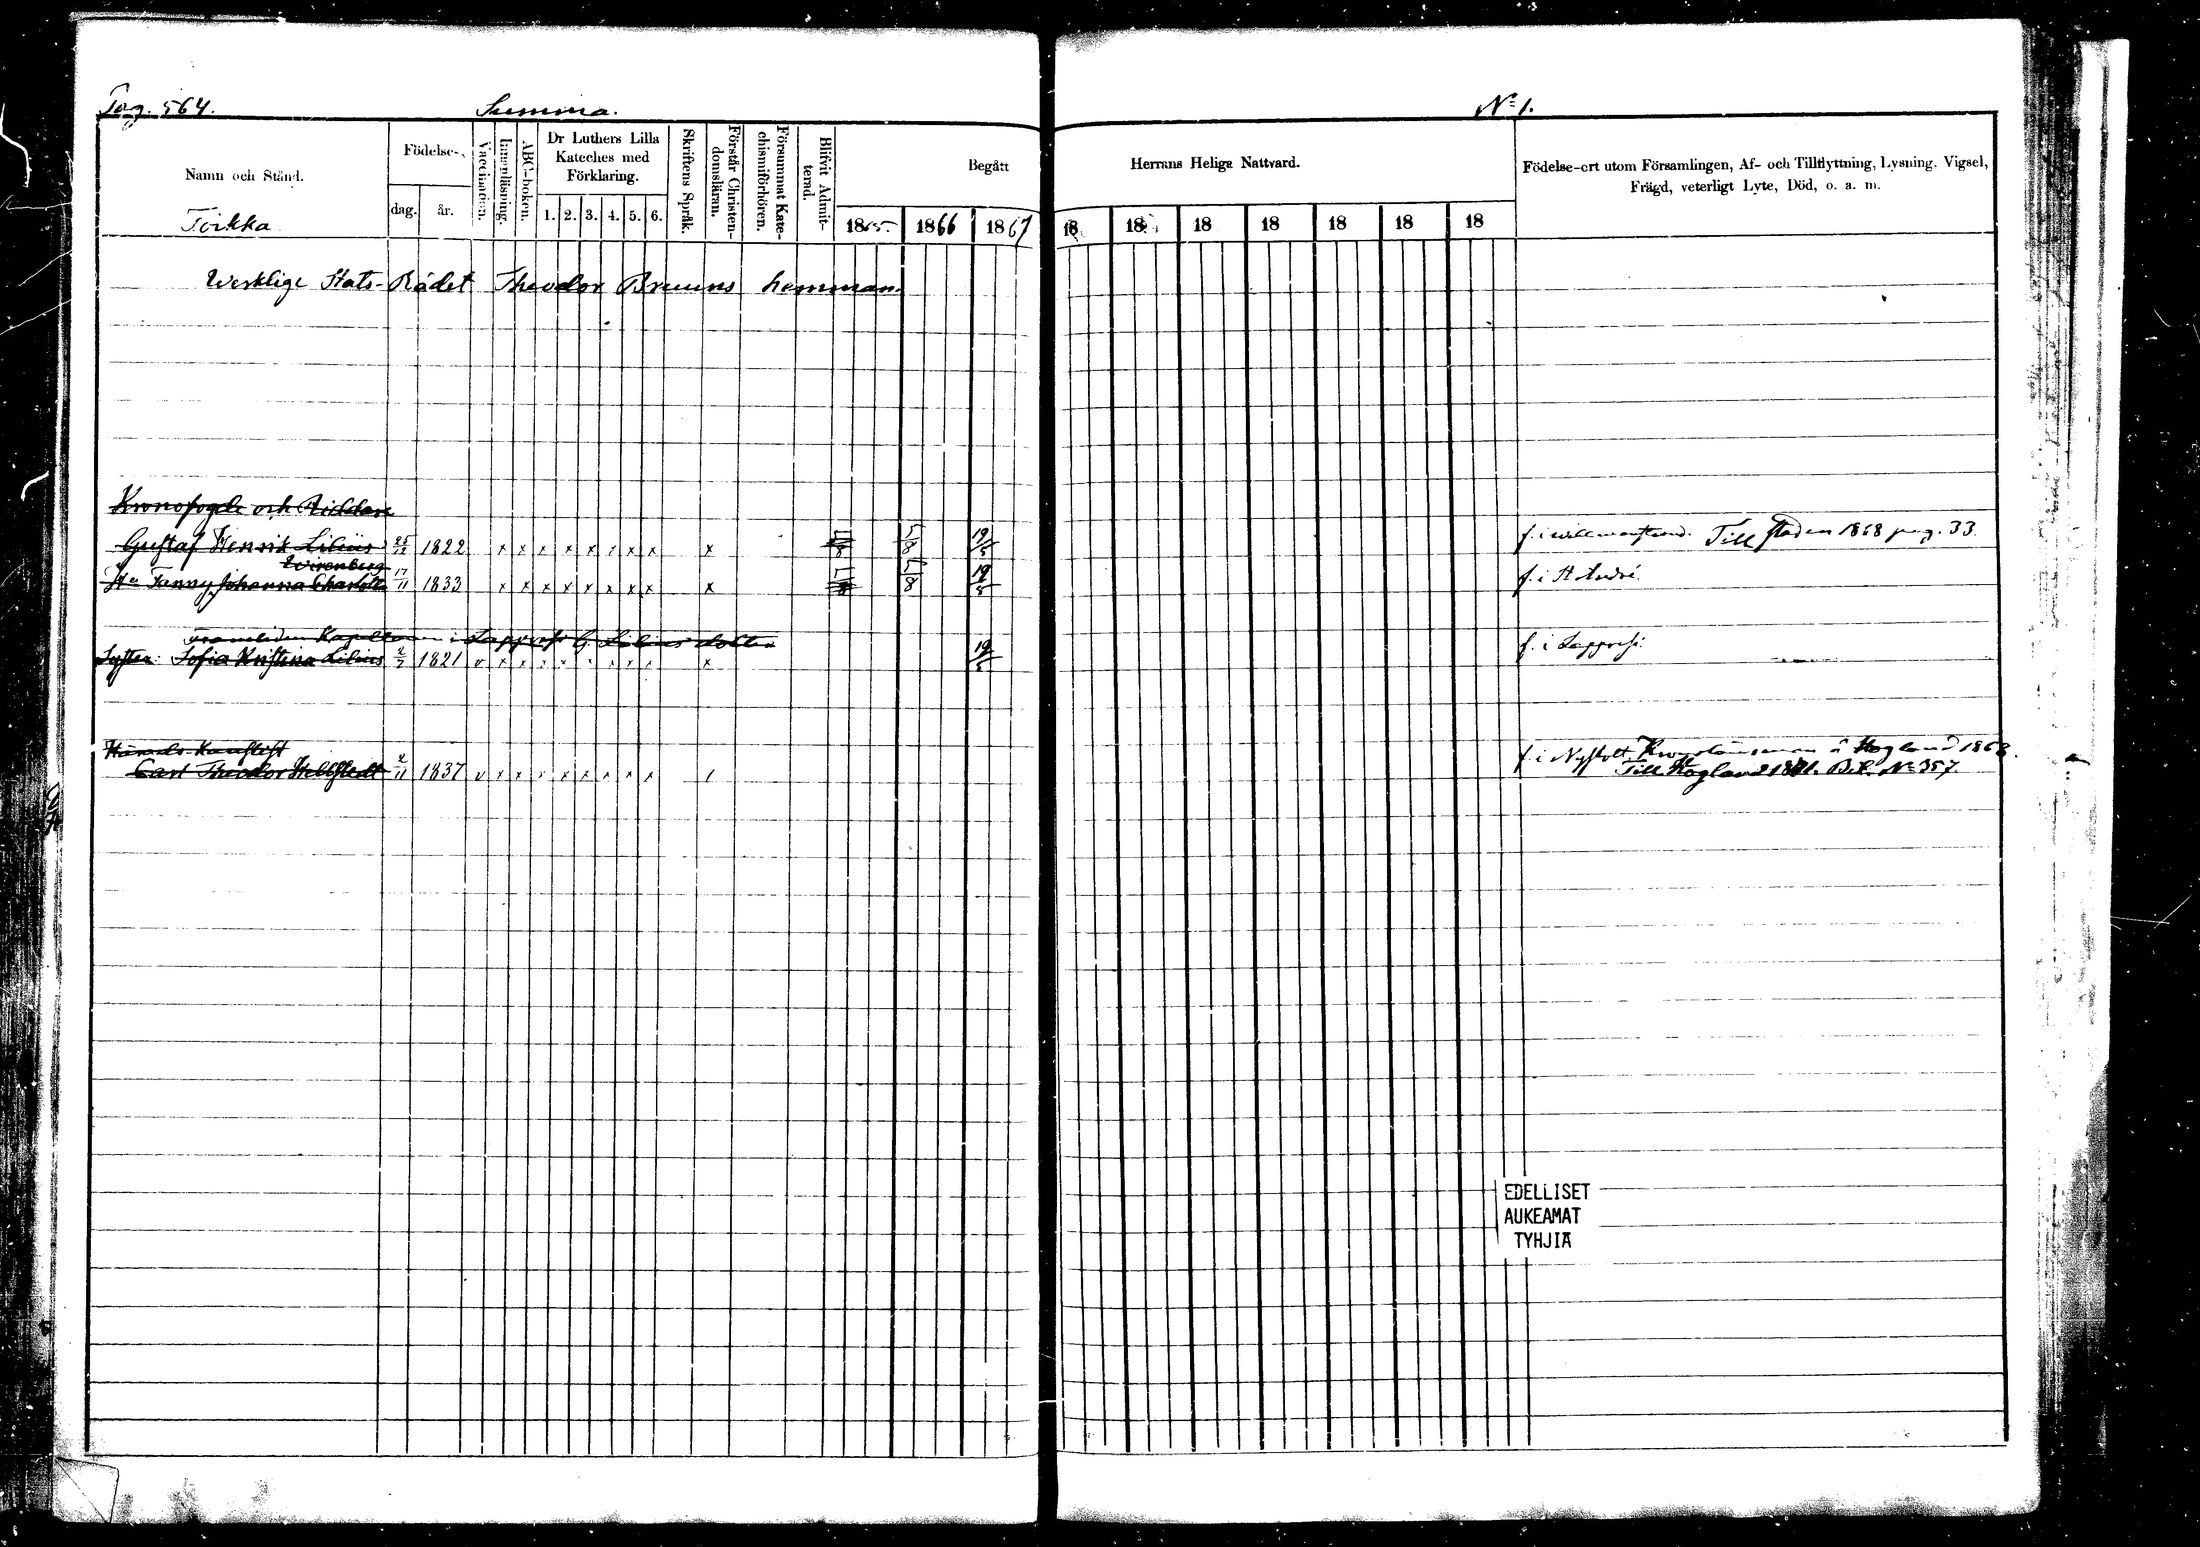 Pag. 564. Summa. No 1.
Namn och Stånd. Födelse- dag. år. Vaccination. Innanläsning. ABC-boken. Dr Luthers Lilla Kateches med Förklaring. 1. 2. 3. 4. 5. 6. Skriftens Språk. Förstår Christendomsläran. Försummat Katechismiförhören. Blifvit Admitterad. Begått Herrans Heliga Nattvard. Födelse-ort utom Församlingen, Af- och Tillflyttning, Lysning, Vigsel, Frägd, veterligt Lyte, Död, o. a. m.
Toikka 1865. 1866 1867 18 18 18 18 18 18 18
Werklige Stats-Rådet Theodor Bruuns hemman.
Kronofogde och Riddare
Gustaf Henrik Lilius 25/12 1822 x x x x x x x x x 5/8 19/5 f. i Willmanstrand. Till staden 1868 pag. 33.
Wirenberg
Hu Fanny Johanna Charlotta 17/11 1833 x x x x x x x x x 5/8 19/5 f. i St André.
Framlidne Kapellanen i Lappvesi G. Lilius' dotter
Syster: Sofia Kristina Lilius 2/7 1821 v x x x x x x x x x 19/5 f. i Lappvesi.
Härads-Kanslist
Carl Theodor Hellstedt 2/11 1837 v x x x x x x x x / f. i Nyslott Kronolänsman å Hogland 1868.
Till Hogland 1871. B.t. No 357.
EDELLISET
AUKEAMAT
TYHJIÄ